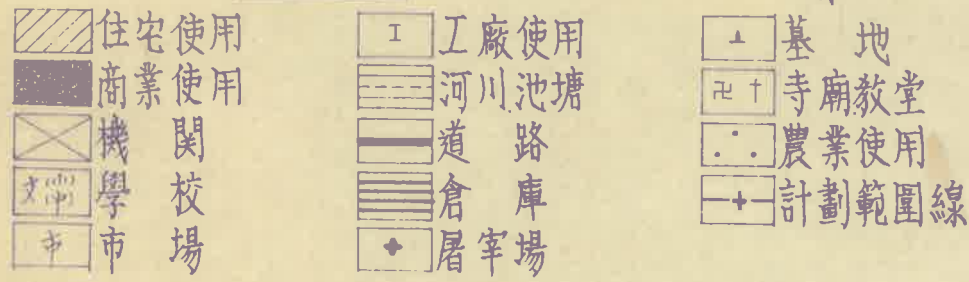 住宅使用
商業使用
機関
文 學校
市 市場
工 工廠使用
河川池塘
道路
倉庫
屠宰場
墓地
卍 寺廟教堂
農業使用
計劃範圍線